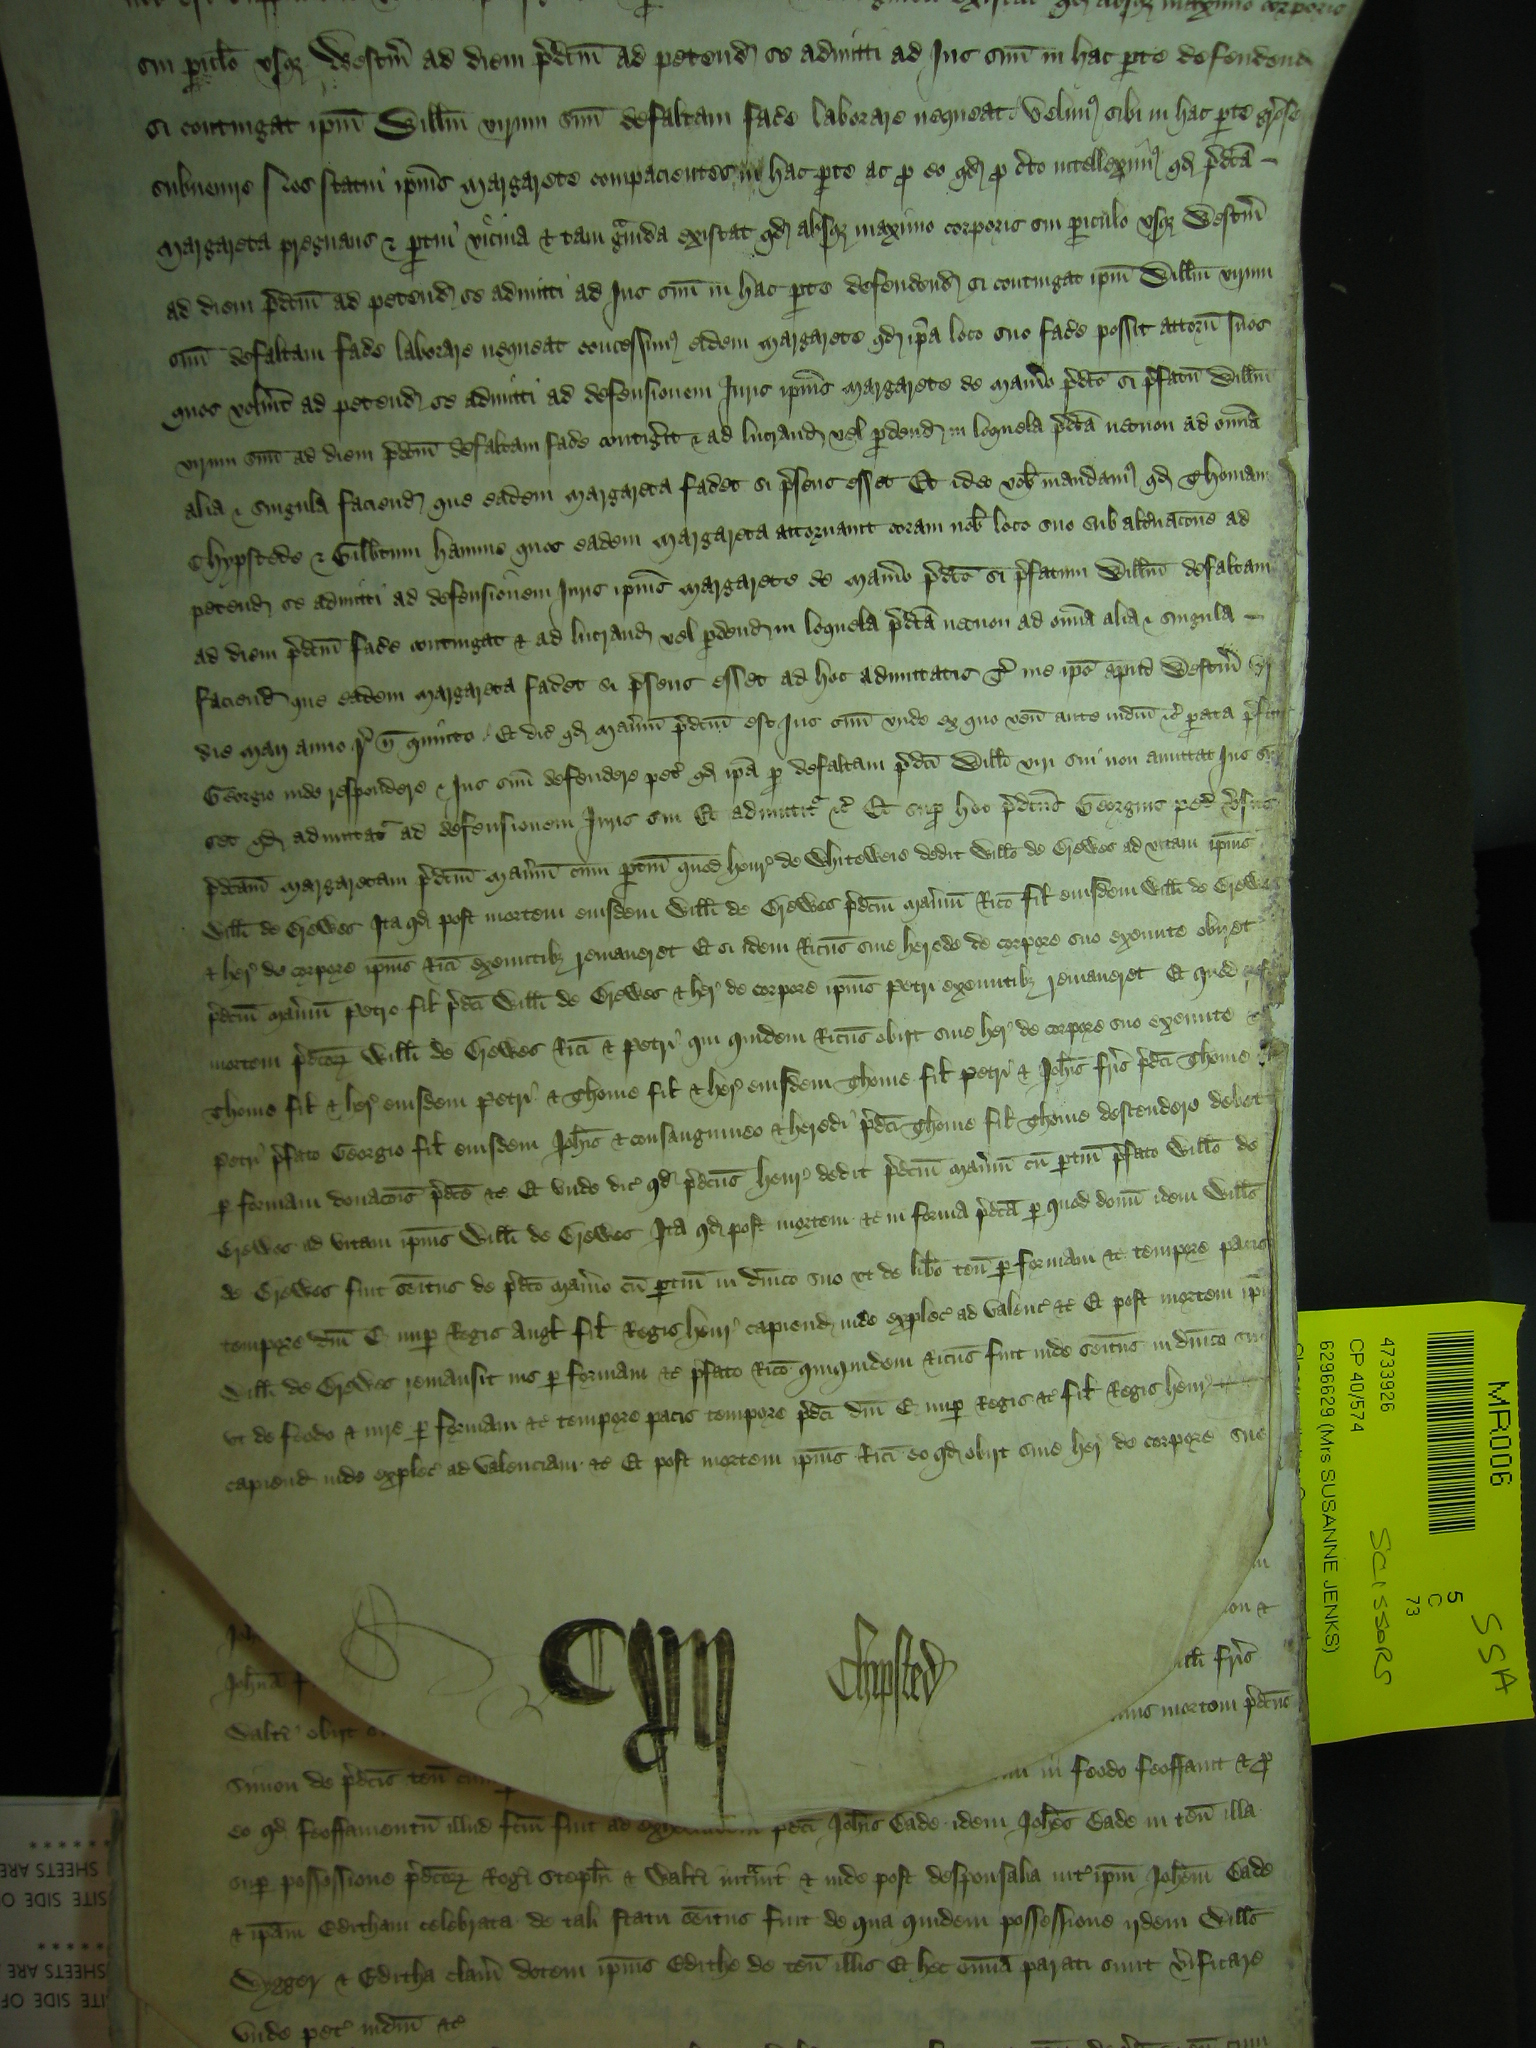 sui piculo vsqz Westm ad diem pdcm ad petend se admitti ad Jus suu in hac pte defendend
si contingat ipm Willm virum suu defaltam face laborare nequeat velim sibi in hac pte gose
subuenire Nos statui ipius Margarete compacientes in hac pte ac p eo qd p cto intelleximus qd pdca
Margareta pregnans & ptui vicina & tam grauida existat qd absqz maximo corporis sui piculo vsqz Westm
ad diem pdcm ad petend se admitti ad Jus suu in hac pte defendend si contingat ipm Willm virum
suu defaltam face laborare nequeat concessim eidem Margarete qd ipa loco suo face possit attorn suos
quos voluit ad petend se admitti ad defensionem Juris ipius Margarete de Manio pdco si pfatu Willm
virum suu ad diem pdcm defaltam face contigit & ad lucrand vel pdend in loquela pdca necnon ad omia
alia & singula faciend que eadem Margareta facet si psens esset Et ideo vob mandam qd Thomam
Chypstede & Gilbtum Hamme quos eadem Margareta attornauit coram nob loco suo sub alnacone ad
petend se admitti ad defensionem Juris ipius Margarete de Manio pdco si pfatum Willm defaltam
ad diem pdcm face contingat & ad lucrand vel pdend in loquela pdca necnon ad omia alia & singula
faciend que eadem Margareta facet si psens esset ad hoc admittatis T me ipo apud Westm
die Maii anno r n quinto Et dic qd Maniu pdcm est Jus suu vnde ex quo ven ante iudiu &c parata pfato
Georgio inde respondere & Jus suu defendere pet qd ipa p defaltam pdci Willi viri sui non amittat Jus
set qd admittat ad defensionem Juris sui Et admittit &c Et sup hoc pdcus Georgius pet vsus
pdcam Margaretam pdcm Maniu cum ptin quod Henr de Whitewere dedit Willo de Crewes ad vitam ipius
Willi de Crewes Ita qd post mortem eiusdem Willi de Crewes pdcm Maniu Rico fil eiusdem Willi de Crewes
& her de corpore ipius Rici exeuntibz remaneret Et si idem Ricus sine herede de corpore suo exeunte obiret
pdcm Maniu Petro fil pdci Willi de Crewes & her de corpore ipius Petri exeuntibz remaneret Et quod post
mortem pdcorz Willi de Crewes Rici & Petri qui quidem Ricus obiit sine her de corpore suo exeunte &
Thome fil & her eiusdem Petri & Thome fil & her eiusdem Thome fil Petri & Johis fris pdci Thome fil
Petri pfato Georgio fil eiusdem Johis & consanguineo & heredi pdci Thome fil Thome descendere debet
p formam donacois pdce &c Et vnde dic qd pdcus Henr dedit pdcm Maniu cu ptin pfato Willo de
Crewes ad vitam ipius Willi de Crewes Ita qd post mortem &c in forma pdca p quod donu idem Willus
de Crewes fuit seitus de pdco Manio cu ptin in dnico suo vt de libo ten p formam &c tempore pacis
tempore dni E nup Regis Angl fil Regis Henr capiend inde explec ad valenc &c Et post mortem ipius
Willi de Crewes remansit ius p formam &c pfato Rico qui quidem Ricus fuit inde seitus in dnico suo
vt de feodo & iure p formam &c tempore pacis tempore pdci dni E nup Regis &c fil Regis Henr
capiend inde explec ad valenciam &c Et post mortem ipius Rici eo qd obiit sine her de corpore suo
Chipsted
on &
Willi fris
mortem pdcus
Walti obiit
Simon de pdcis ten cum
in feodo feoffauit & p
eo qd feoffamentu illud fcm fuit ad pdci Johis Cade idem Johes Cade in ten illa
sup possessione pdcorz Rogi Stephi & Walti intrauit & inde post desponsalia int ipm Johem Cade
& ipam Editham celebrata de tali statu seitus fuit de qua quidem possessione iidem Willus
Wygger & Editha clam dotem ipius Edithe de ten illis Et hec omia parati sunt vificare
vnde pet iudiu &c
MR006
4733926
CP 40/574
6296629 (Mrs SUSANNE JENKS)
5
C
73
SCISSORS
SSA
SHEETS ARE
SITE SIDE OF
SHEETS ARE
SITE SIDE OF